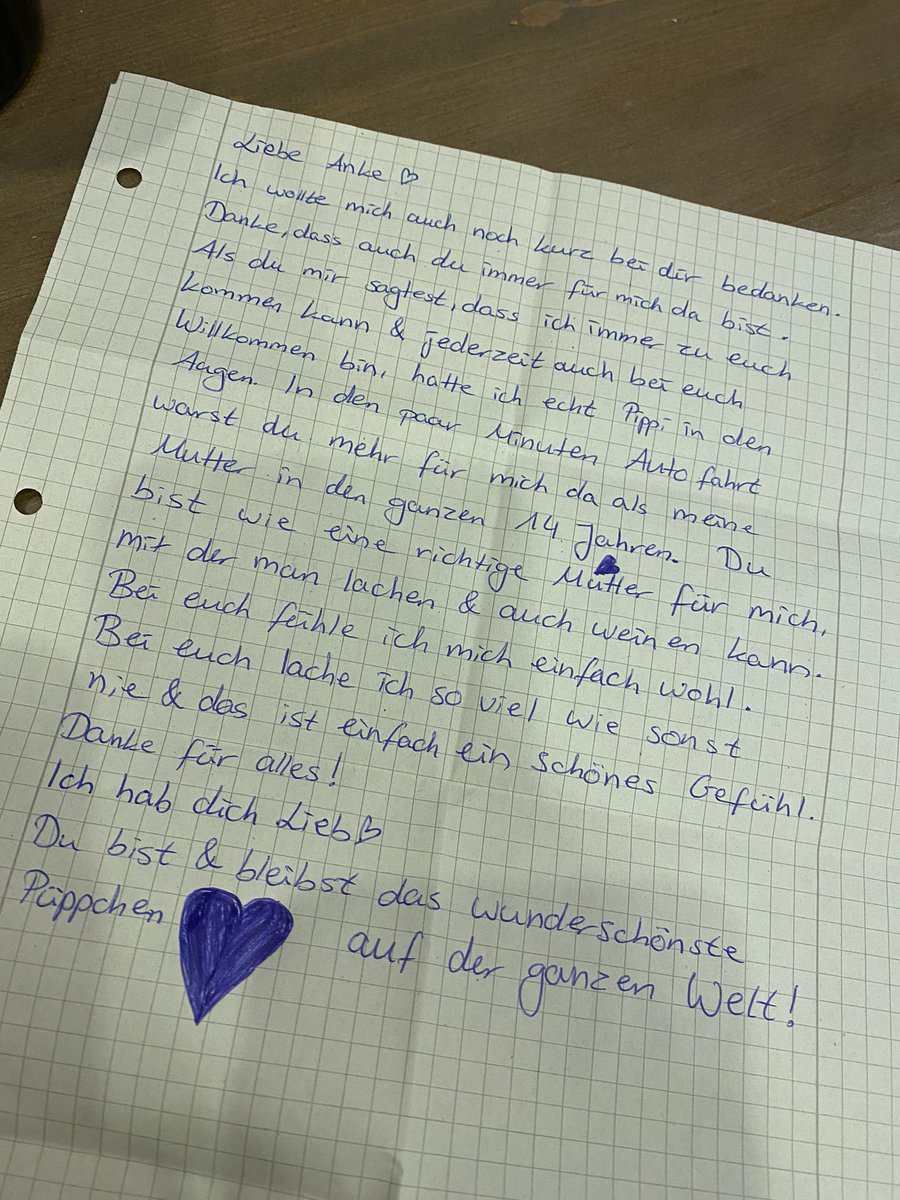 Liebe Anke ♡
Ich wollte mich auch noch kurz bei dir bedanken.
Danke, dass auch du immer für mich da bist.
Als du mir sagtest, dass ich immer zu euch
kommen kann & jederzeit auch bei euch
Willkommen bin, hatte ich echt Pippi in den
Augen. In den paar Minuten Autofahrt
warst du mehr für mich da als meine
Mutter in den ganzen 14. Jahren. Du
bist wie eine richtige Mutter für mich,
mit der man lachen & auch weinen kann.
Bei euch fühle ich mich einfach wohl.
Bei euch lache ich so viel wie sonst
nie & das ist einfach ein schönes Gefühl.
Danke für alles!
Ich hab dich Lieb♡
Du bist & bleibst das wunderschönste
Püppchen auf der ganzen Welt!